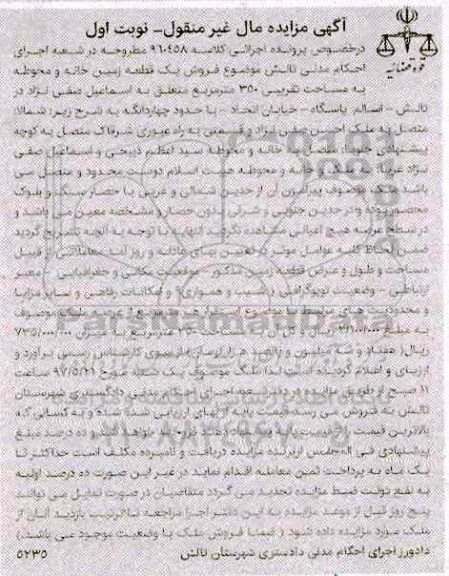 آگهی مزایده مال غیر منقول- نوبت اول
درخصوص پرونده اجرائی کلاسه ۹۶۰۴۵۸ مطروحه در شعبه اجرای
احکام مدنی تالش موضوع فروش یک قطعه زمین خانه و محوطه
به مساحت تقریبی ۳۵۰ مترمربع متعلق به اسماعیل صفی نژاد در
تالش - اسالم پاسگاه - خیابان اتحاد - با حدود چهارگانه به شرح زیر: شمالا:
متصل به ملک احسن صفی نژاد و قسمتی به راه عبوری شرقا: متصل به کوچه
پیشنهادی جنوبا: متصل به خانه و محوطه سید اعظم ذبیحی و اسماعیل صفی
نژاد غربا: به ملک و خانه و محوطه هیبت اسلام دوست محدود و متصل می
باشد ملک موصوف پیرامون آن از حدین شمالی و غربی با حصار سنگ و بلوک
محصور بوده و در حدین جنوبی و شرقی بدون حصار و مشخصه معین می باشد و
در سطح عرصه هیچ اعیانی مشاهده نگردید. النهایه با توجه به آنچه تشریح گردید
ضمن لحاظ کلیه عوامل موثر در تعیین بهای عادلانه و روز
مساحت و طول و عرض قطعه زمین مذکور - موقعیت مکانی و جغرافیایی - معبر
ارتباطی - وضعیت توپوگرافی (شیب و همواری) و امکانات رفاهی و سایر مزایا
و محدودیت های مرتبط به موضوع ارزش هر مترمربع از عرصه ملک موصوف
به مبلغ ۲/۱۰۰/۰۰۰ ریال و کل آن مترمربع به میزان ۷۳۵/۰۰۰/۰۰۰
ریال( هفتاد و سه میلیون و پانصد هزار تومان) از سوی کارشناس رسمی برآورد و
ارزیابی و اعلام گردیده است لذا ملک موصوف یک شنبه مورخ ۹۷/۵/۲۱ ساعت
۱۱ صبح از طریق مزایده در دفتر شعبه اجرای احکام مدنی دادگستری شهرستان
تالش به فروش می رسد قیمت پایه از بهای ارزیابی شده شده و به کسانی که
بالاترین قیمت را فروخته خواهد شد و ده درصد مبلغ
پیشنهادی فی المجلس ازبرنده مزایده دریافت و نامبرده مکلف است حداکثر تا
یک ماه به پرداخت ثمن معامله اقدام نمایند در غیر این صورت ده درصد اولیه
به نفع دولت ضبط مزایده تجدید می گردد متقاضیان در صورت تمایل می توانند
پنج روز قبل از موعد مزایده به این دفتر اجرا مراجعه تاترتیب بازدید آنان از
ملک مورد مزایده داده شود ( ضمنا فروش ملک با وضعیت موجود می باشد.)
دادورز اجرای احکام مدنی دادگستری شهرستان تالش
۵۲۳۵